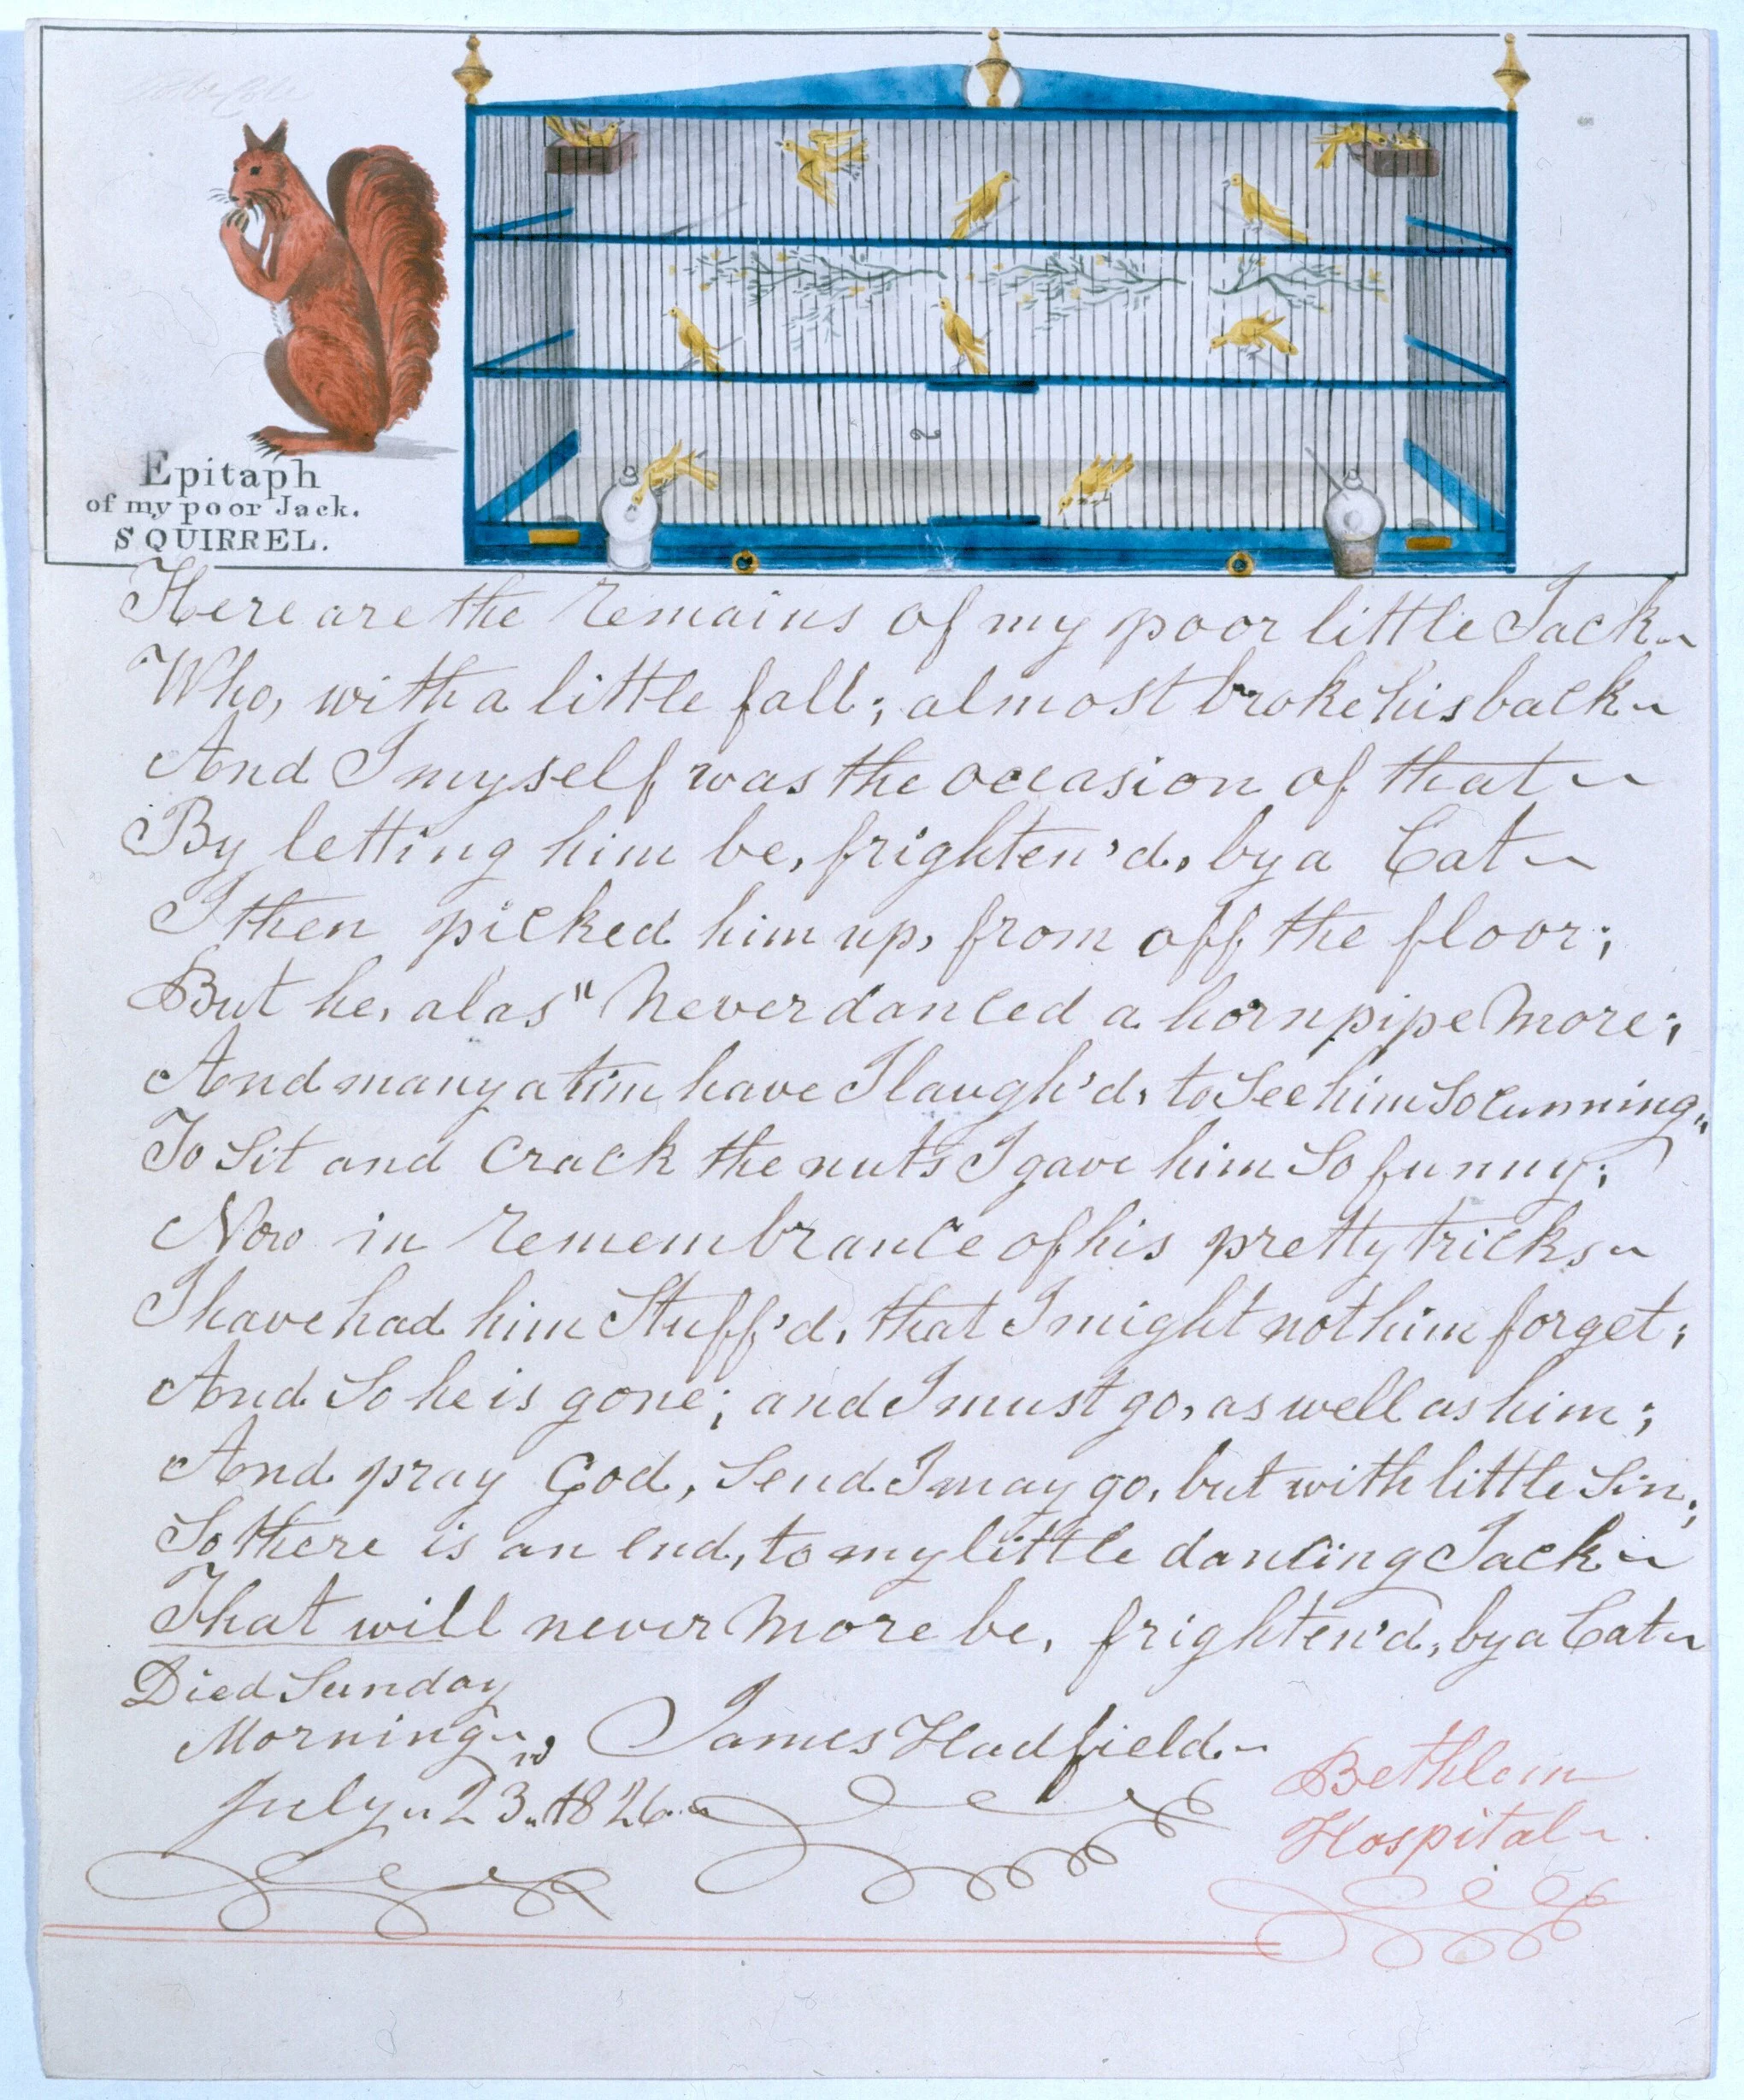 Epitaph
of my poor Jack.
SQUIRREL.
Here are the remains of my poor little Jack~
Who, with a little fall; almost broke his back~
And I myself was the occasion of that~
By letting him be, frighten'd, by a Cat~
I then picked him up, from off the floor;
But he, alas" Never danced a hornpipe More;
And many a tim have I laugh'd, to See him So Cunning,,
To Sit and Crack the nuts I gave him So funny;
Now in remembrance of his pretty tricks~
I have had him Stuff'd, that I might not him forget;
And So he is gone; and I must go, as well as him;
And pray God, Send I may go, but with little Sin;
So there is an End, to my little dancing Jack~
That will never More be, frighten'd, by a Cat~
Died Sunday
Morning~,, James Hadfield~
July,, 23,, 1826~
Bethlem
Hospital~